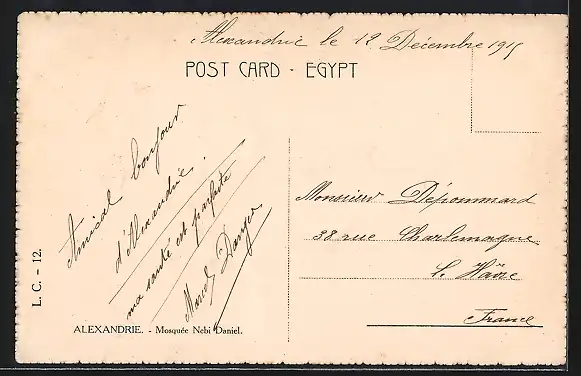 Alexandrie le 12 Décembre 1915
POST CARD - EGYPT
Amical bonjour
d'Alexandrie.
ma santé est parfaite
Marcel
Monsieur Déponmard
38 rue Charlemagne
L. Hâvre
France
L. C. - 12.
ALEXANDRIE. - Mosquée Nebi Daniel.